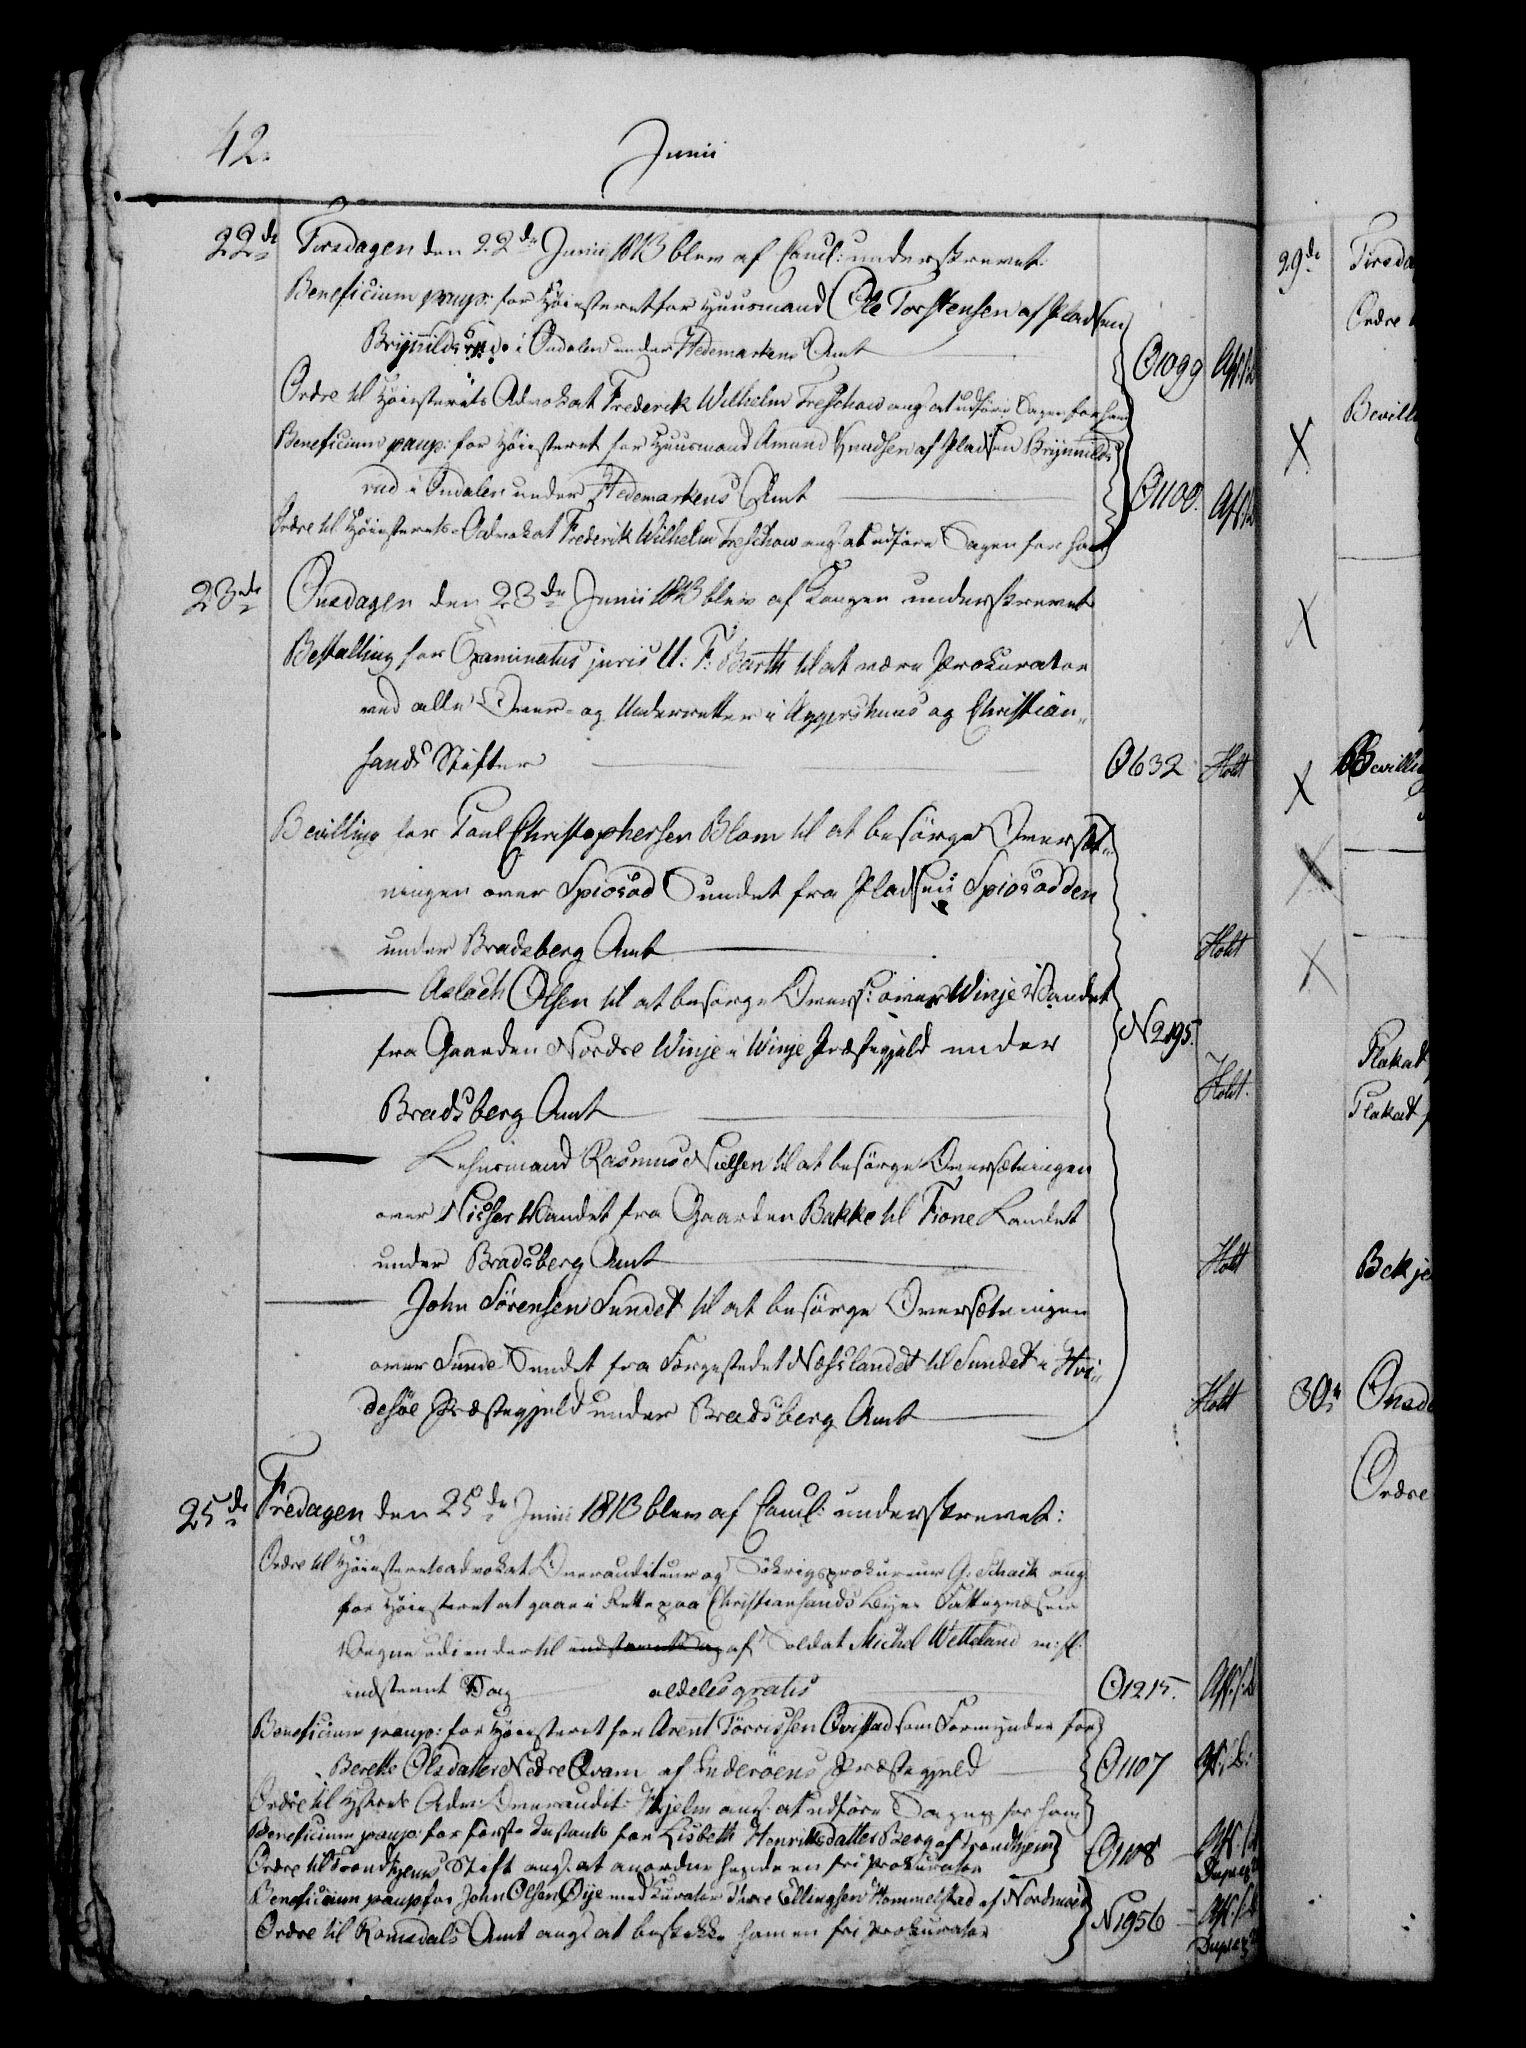 42.
Junii
22de Tirsdagen den 22de Junii 1813 blev af Cancl: underskrevet:
Beneficium paup: for Høiesteret for Huusmand Ole Torstensen af Pladsen
Brynnilds i Ondalen under Hedemarkens Amt
O1099
Ordre til Høiesterets Advokat Frederik Wilhelm Treschow ang: at udføre Sagen for ham
Beneficium paup: for Høiesteret for Huusmand Amund Knudsen af Pladsen Brynnilds
rud i Ondalen under Hedemarkens Amt
O1100.
Ordre til Høiesterets-Advokat Frederik Wilhelm Treschow ang: at udføre Sagen for ham
23de Onsdagen den 23de Junii 1813 blev af Kongen underskrevet
Bestalling for Examinatus juris U: F: Barth til at være Prokurator
ved alle Over- og Underretter i Aggershuus og Christian„
sands Stifter
O632 Holt
Bevilling for Poul Christophersen Blom til at besørge Oversæt„
ningen over Spiosod Sundet fra Pladsen Spiosodden
under Bradsberg Amt
Holt
— Aslach Olsen til at besørge Overs: over Winje Vandet
fra Gaarden Nordre Winje i Winje Præstegjeld under
N2195.
Bradsberg Amt
Holt.
— Lehnsmand Rasmus Nielsen til at besørge Oversætningen
over Nisser Vandet fra Gaarden Bakke til Fione Landet
under Bradsberg Amt
Holt
— John Sørensen Sundet til at besørge Oversætningen
over Sunde Sundet fra Færgestedet Næsslandet til Sundet i Hvi„
desøe Præstegjeld under Bradsberg Amt
Holt
25de Fredagen den 25de Junii 1813 blev af Cancl: underskrevet:
Ordre til Høiesteretsadvokat Overauditeur og Søkrigsprokureur G. Schack ang
for Høiesteret at gaae i Rette paa Christiansands Byes Fattigvæsens
Vegne udi en der til indstævnt Sag af Soldat Michel Wetteland m: fl:
indstevnt Sag aldeles gratis
O1215.
Beneficium paup: for Høiesteret for Arent Tørrissen Qvistad som Formynder for
Berette Olsdatter Nedre Qvam af Inderøens Præstegjeld
O1107
Ordre til Adv: Overaudit: Hjelm ang: at udføre Sagen for ham
Beneficium paup: for første Instants for Lisbeth Henriksdatter Berg af Trondhjem
O1108
Ordre til Trondhjems Stift ang: at anordne hende en fri Prokurator
Beneficium paup for John Olsen Øye med Kurator Thore Ellingsen Hommelstad af Nordmøer
N1956
Ordre til Romsdals Amt ang: at beskikke ham en fri Prokurator
29de
Ordre
Plakat
Plakat
30te
Ordre